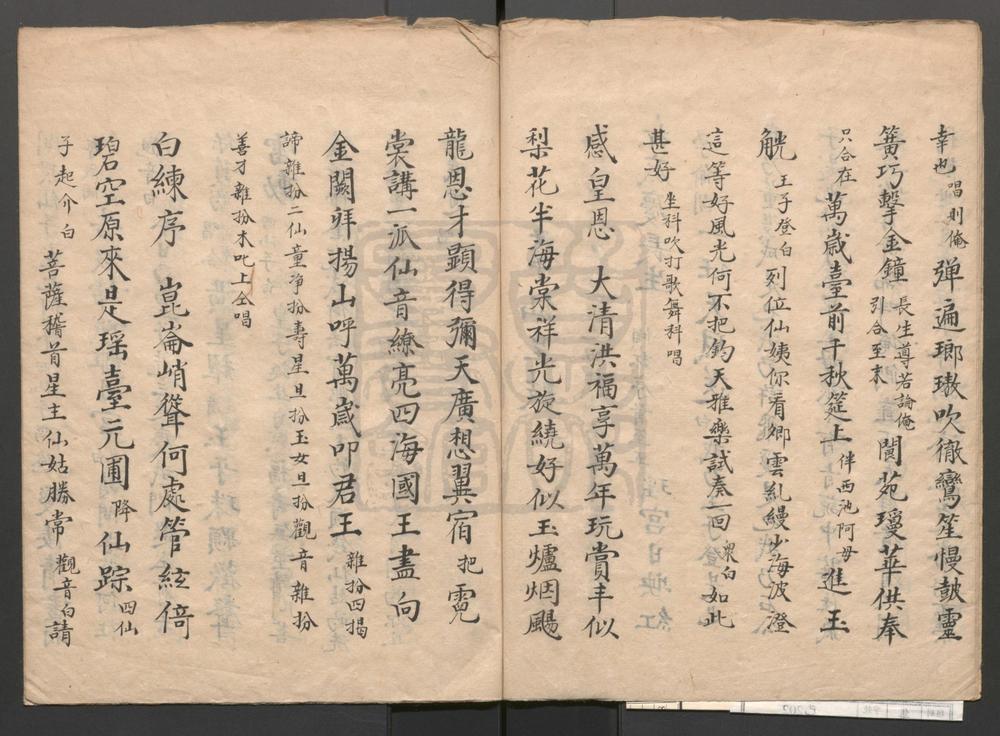 幸也唱則俺彈遍瑯璈吹徹鸞笙慢鼓靈
簧巧擊金鐘長生尊若論俺引合至末閬苑瓊華供奉
只合在萬歲臺前千秋筵上伴西池阿母進玉
觥王子登白列位仙姨你看卿雲糺縵少海波澄
這等好風光何不把鈞天雅樂試奏一回衆白如此
甚好坐科吹打歌舞科唱
感皇恩 大清洪福享萬年玩賞丰似
梨花半海棠祥光旋繞好似玉爐烟颺
龍恩才顯得彌天廣想翼宿把霓
裳講一派仙音繚亮四海國王盡向
金闕拜揚山呼萬歲叩君王雜扮四揭
諦雜扮二仙童淨扮壽星旦扮玉女旦扮觀音雜扮
善才雜扮木叱上仝唱
白練序 崑崙峭聳何處管絃倍
碧空原來是瑶臺元圃降仙踪四仙
子起介白菩薩稽首星主仙姑勝常觀音白請